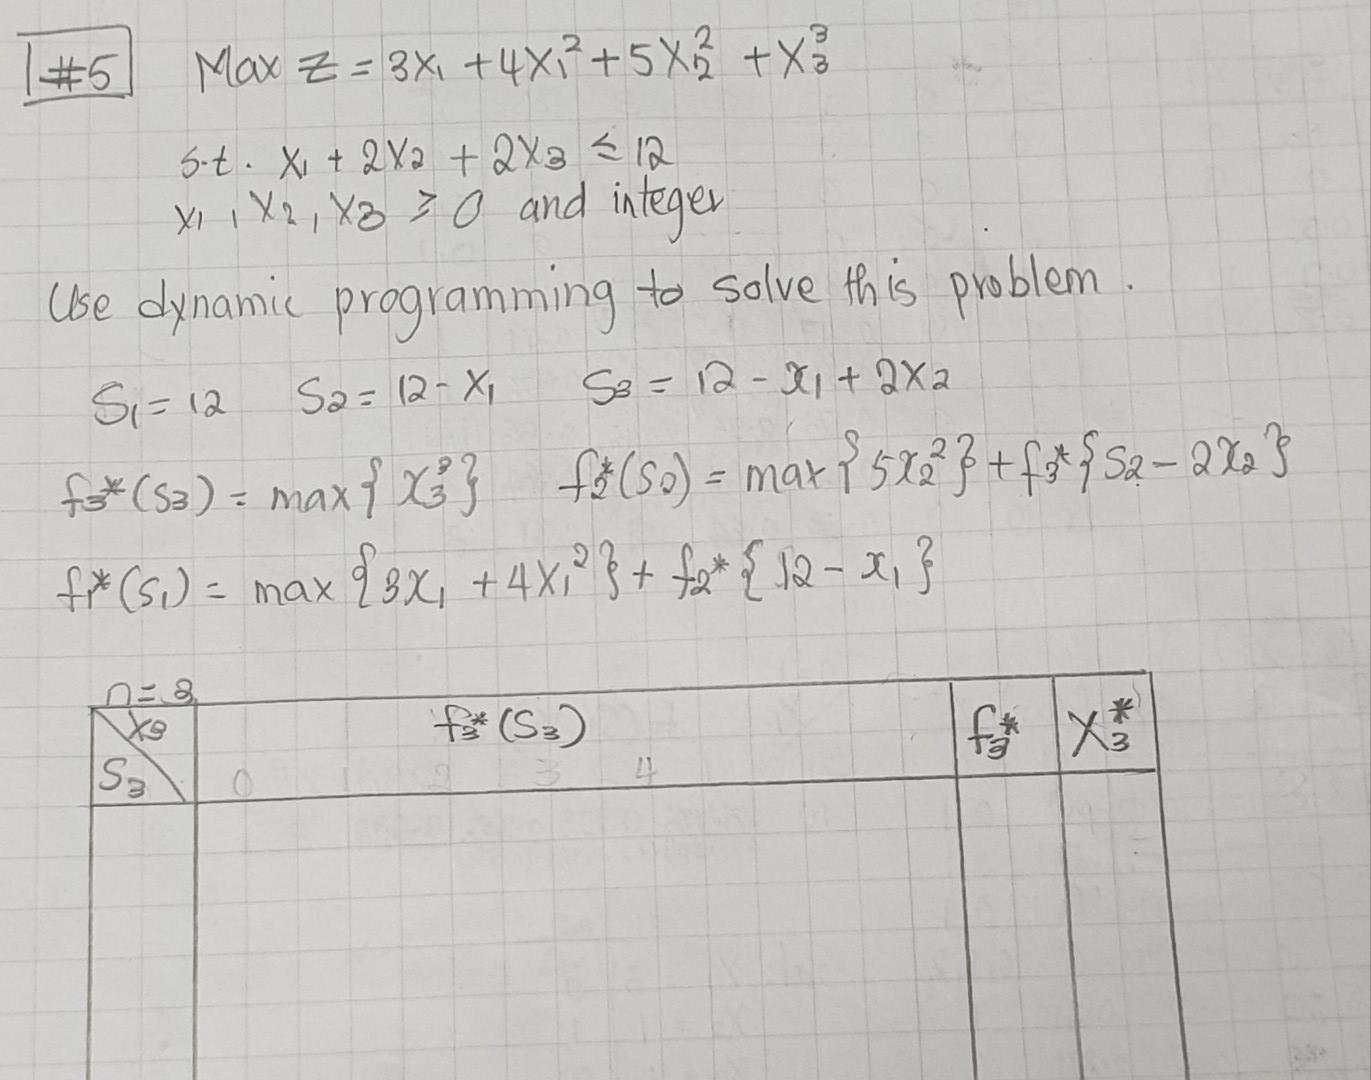 #5 Max Z = 3x₁ + 4x₁² + 5x₂² + x₃³
s.t. x₁ + 2x₂ + 2x₃ ≤ 12
x₁, x₂, x₃ ≥ 0 and integer
Use dynamic programming to solve this problem.
S₁ = 12 S₂ = 12 - x₁ S₃ = 12 - x₁ + 2x₂
f₃*(S₃) = max{x₃³} f₂*(S₂) = max{5x₂²} + f₃*{S₂ - 2x₂}
f₁*(S₁) = max{3x₁ + 4x₁²} + f₂*{12 - x₁}
n = 3
x₃ f₃*(S₃) f₃* x₃*
S₃ 0 1 2 3 4